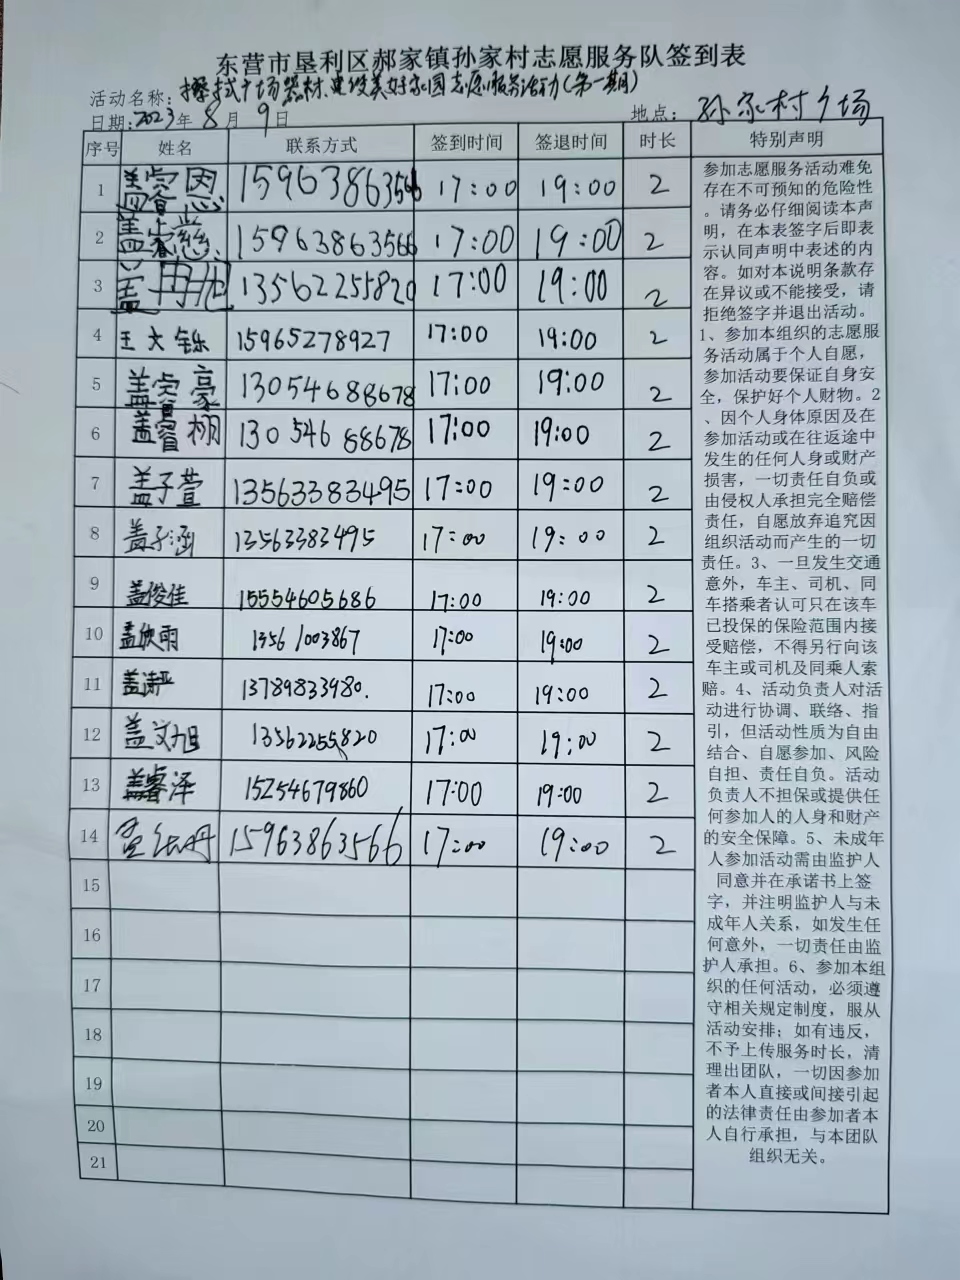 东营市垦利区郝家镇孙家村志愿服务队签到表
活动名称：擦拭广场器材、建设美好家园志愿服务活动(第一期)
日期：2023年8月9日 地点：孙家村广场
序号 姓名 联系方式 签到时间 签退时间 时长 特别声明
1 15963863566 17:00 19:00 2
2 15963863566 17:00 19:00 2
3 盖冉旭 13562255820 17:00 19:00 2
4 王文铄 15965278927 17:00 19:00 2
5 豪 13054688678 17:00 19:00 2
6 盖睿栩 13054688678 17:00 19:00 2
7 盖子萱 13563383495 17:00 19:00 2
8 盖子涵 13563383495 17:00 19:00 2
9 盖俊佳 15554605686 17:00 19:00 2
10 盖欣雨 13561003867 17:00 19:00 2
11 盖涛亚 13789833980. 17:00 19:00 2
12 盖文旭 13562255820 17:00 19:00 2
13 盖睿泽 15254679860 17:00 19:00 2
14 15963863566 17:00 19:00 2
15
16
17
18
19
20
21
参加志愿服务活动难免
存在不可预知的危险性
。请务必仔细阅读本声
明，在本表签字后即表
示认同声明中表述的内
容。如对本说明条款存
在异议或不能接受，请
拒绝签字并退出活动。
1、参加本组织的志愿服
务活动属于个人自愿，
参加活动要保证自身安
全，保护好个人财物。2
、因个人身体原因及在
参加活动或在往返途中
发生的任何人身或财产
损害，一切责任自负或
由侵权人承担完全赔偿
责任，自愿放弃追究因
组织活动而产生的一切
责任。3、一旦发生交通
意外，车主、司机、同
车搭乘者认可只在该车
已投保的保险范围内接
受赔偿，不得另行向该
车主或司机及同乘人索
赔。4、活动负责人对活
动进行协调、联络、指
引，但活动性质为自由
结合、自愿参加、风险
自担、责任自负。活动
负责人不担保或提供任
何参加人的人身和财产
的安全保障。5、未成年
人参加活动需由监护人
同意并在承诺书上签
字，并注明监护人与未
成年人关系，如发生任
何意外，一切责任由监
护人承担。6、参加本组
织的任何活动，必须遵
守相关规定制度，服从
活动安排；如有违反，
不予上传服务时长，清
理出团队，一切因参加
者本人直接或间接引起
的法律责任由参加者本
人自行承担，与本团队
组织无关。